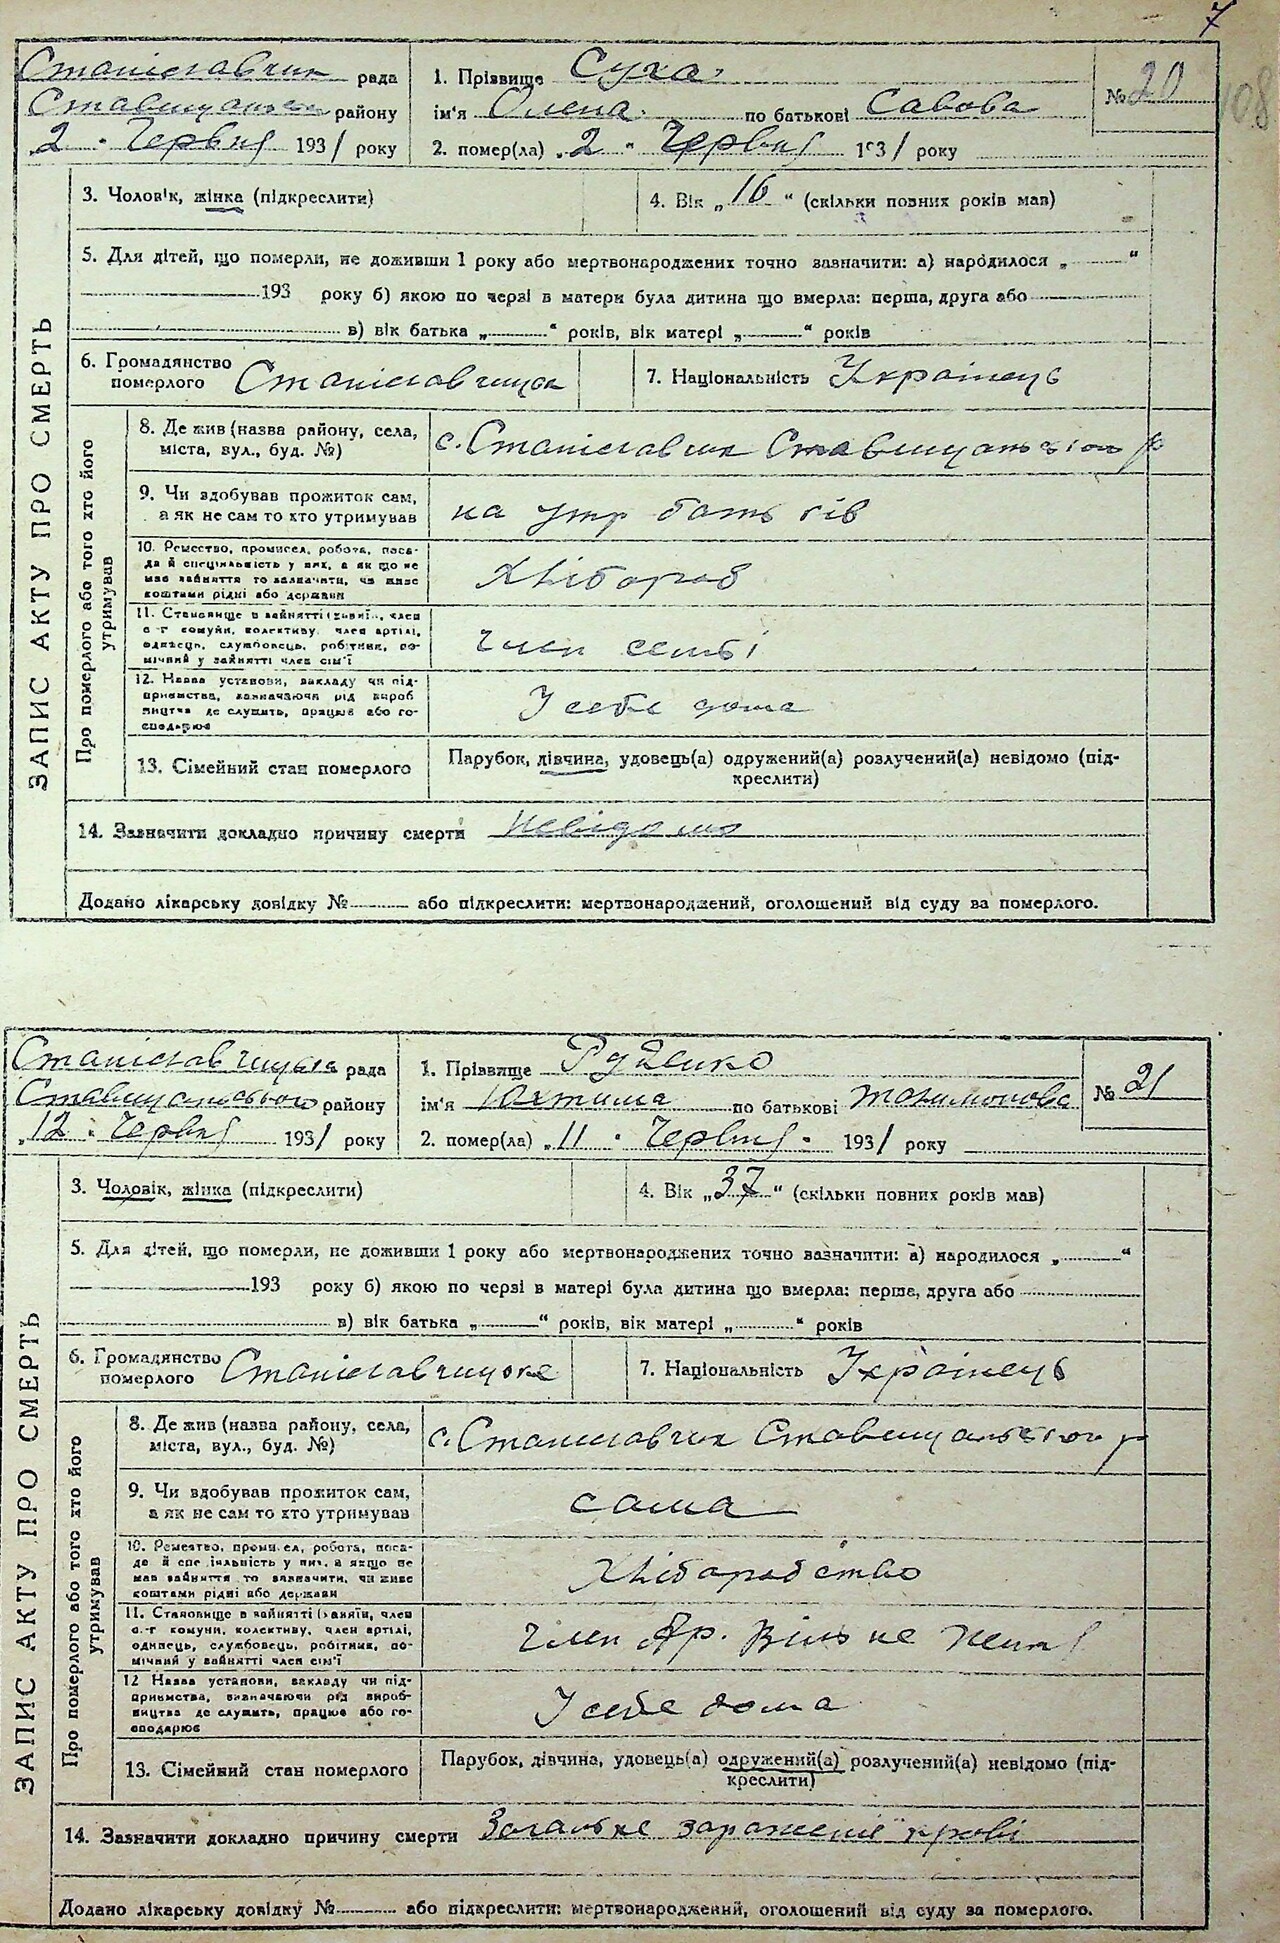 7
108
Станіславчик рада
Ставищанськ району
2 " Червня 1931 року
1. Прізвище Суха
ім'я Олена по батькові Савова
2. помер(ла) „2 " Червня 1931 року
№ 20
ЗАПИС АКТУ ПРО СМЕРТЬ
3. Чоловік, жінка (підкреслити)
4. Вік „ 16 “ (скільки повних років мав)
5. Для дітей, що померли, не доживши 1 року або мертвонароджених точно зазначити: а) народилося „ “
193 року б) якою по черзі в матери була дитина що вмерла: перша, друга або
в) вік батька „ “ років, вік матері „ “ років
6. Громадянство
померлого Станіславчицьк
7. Національність Українець
Про померлого або того хто його
утримував
8. Де жив (назва району, села,
міста, вул., буд. №)
с. Станіславчик Ставищанського р
9. Чи здобував прожиток сам,
а як не сам то хто утримував
на утр батьків
10. Ремество, промисел, робота, поса-
да й спеціяльність у них, а як що не
має зайняття то зазначити, чи живе
коштами рідні або держави
Хлібороб
11. Становище в зайнятті (хазяїн, член
с.-г комуни, колективу, член артілі,
одинець, службовець, робітник, по-
мічний у зайнятті член сім'ї
член семьі
12. Назва установи, закладу чи під-
приємства, зазначаючи рід вироб
ництва де служить, працює або го-
сподарює
У себе дома
13. Сімейний стан померлого
Парубок, дівчина, удовець(а) одружений(а) розлучений(а) невідомо (під-
креслити)
14. Зазначити докладно причину смерти невідомо
Додано лікарську довідку № або підкреслити: мертвонароджений, оголошений від суду за померлого.
Станіславчицька рада
Ставищанського району
„12 " Червня 1931 року
1. Прізвище Руденко
ім'я Юхтима по батькові
2. помер(ла) „11 " Червня 1931 року
№ 21
ЗАПИС АКТУ ПРО СМЕРТЬ
3. Чоловік, жінка (підкреслити)
4. Вік „ 37 “ (скільки повних років мав)
5. Для дітей, що померли, не доживши 1 року або мертвонароджених точно зазначити: а) народилося „ “
193 року б) якою по черзі в матері була дитина що вмерла: перша, друга або
в) вік батька „ “ років, вік матері „ “ років
6. Громадянство
померлого Станіславчицьке
7. Національність Українець
Про померлого або того хто його
утримував
8. Де жив (назва району, села,
міста, вул., буд. №)
с. Станиславчик Ставищанського р
9. Чи вдобував прожиток сам,
а як не сам то хто утримував
сама
10. Ремество, промисел, робота, поса-
да й спеціяльність у них, а якщо не
має зайняття то зазначити, чи живе
коштами рідні або держави
Хліборобство
11. Становище в зайнятті (хазяїн, член
с.-г комуни, колективу, член артілі,
одинець, службовець, робітник, по-
мічний у зайнятті член сім'ї
член Ар. Вільне
12 Назва установи, закладу чи під-
приємства, визначаючи рід вироб-
ництва де служить, працює або го-
сподарює
У себе дома
13. Сімейний стан померлого
Парубок, дівчина, удовець(а) одружений(а) розлучений(а) невідомо (під-
креслити)
14. Зазначити докладно причину смерти Загальне зараженіє крові
Додано лікарську довідку № або підкреслити: мертвонароджений, оголошений від суду за померлого.